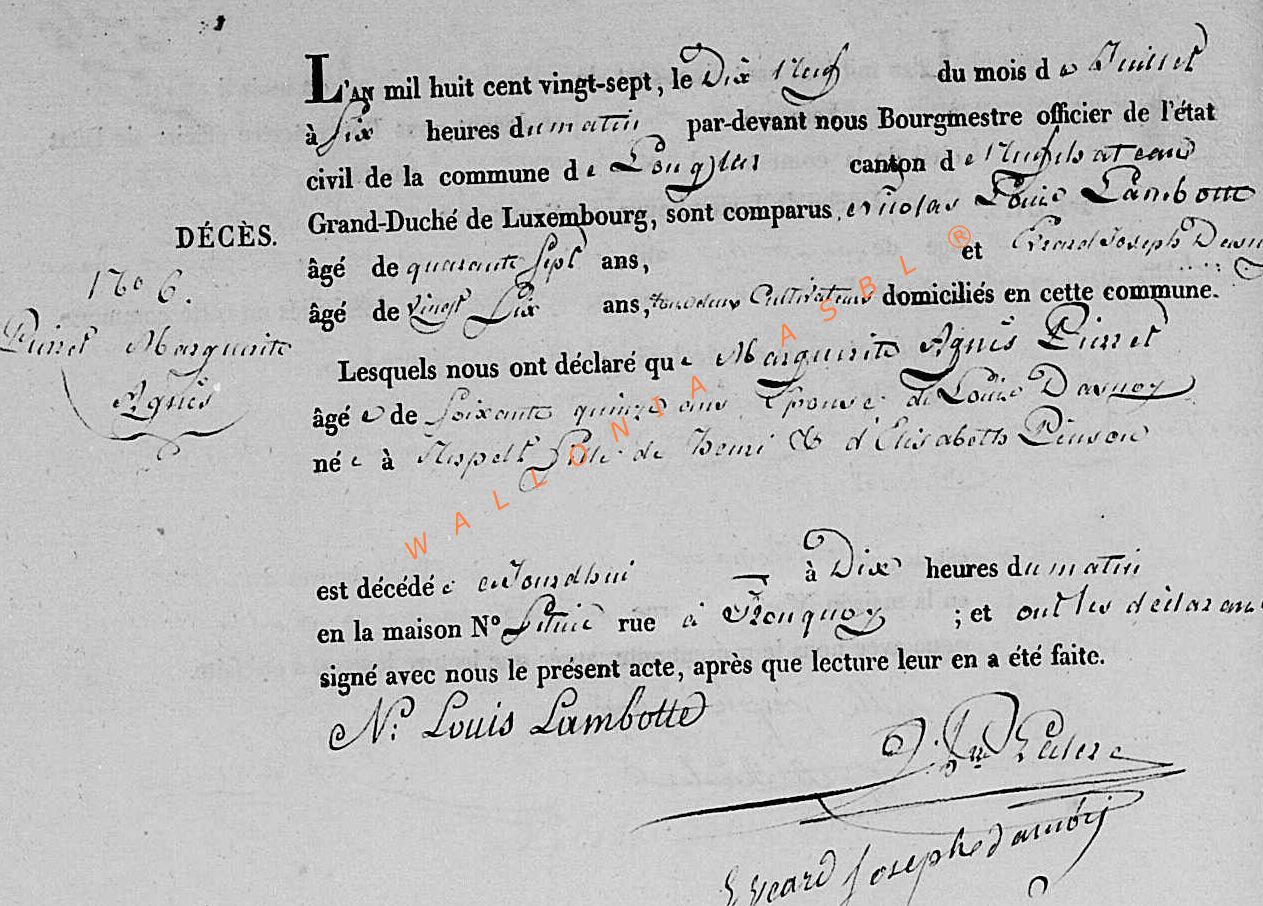 L'AN mil huit cent vingt-sept, le Dix neuf du mois de Juillet
à Six heures du matin par-devant nous Bourgmestre officier de l'état
civil de la commune de Longlier canton de Neufchateau
Grand-Duché de Luxembourg, sont comparus Nicolas Louis Lambotte
DÉCÈS.
âgé de quarante Sept ans, et Evrard Joseph
N° 6.
âgé de vingt Six ans, tous deux Cultivateurs domiciliés en cette commune.
Pierret Marguerite
Agnès
Lesquels nous ont déclaré que Marguerite Agnès Pierret
âgée de Soixante quinze ans Epouse de Louis Dasnoy
née à Respelt fille de henri & d'Elisabeth Pinson
est décédée aujourdhui à Dix heures du matin
en la maison N° Située rue à Ronquoy ; et ont les déclarans
signé avec nous le présent acte, après que lecture leur en a été faite.
N. Louis Lambotte
Evrard Josephe
WALLONIA ASBL ®